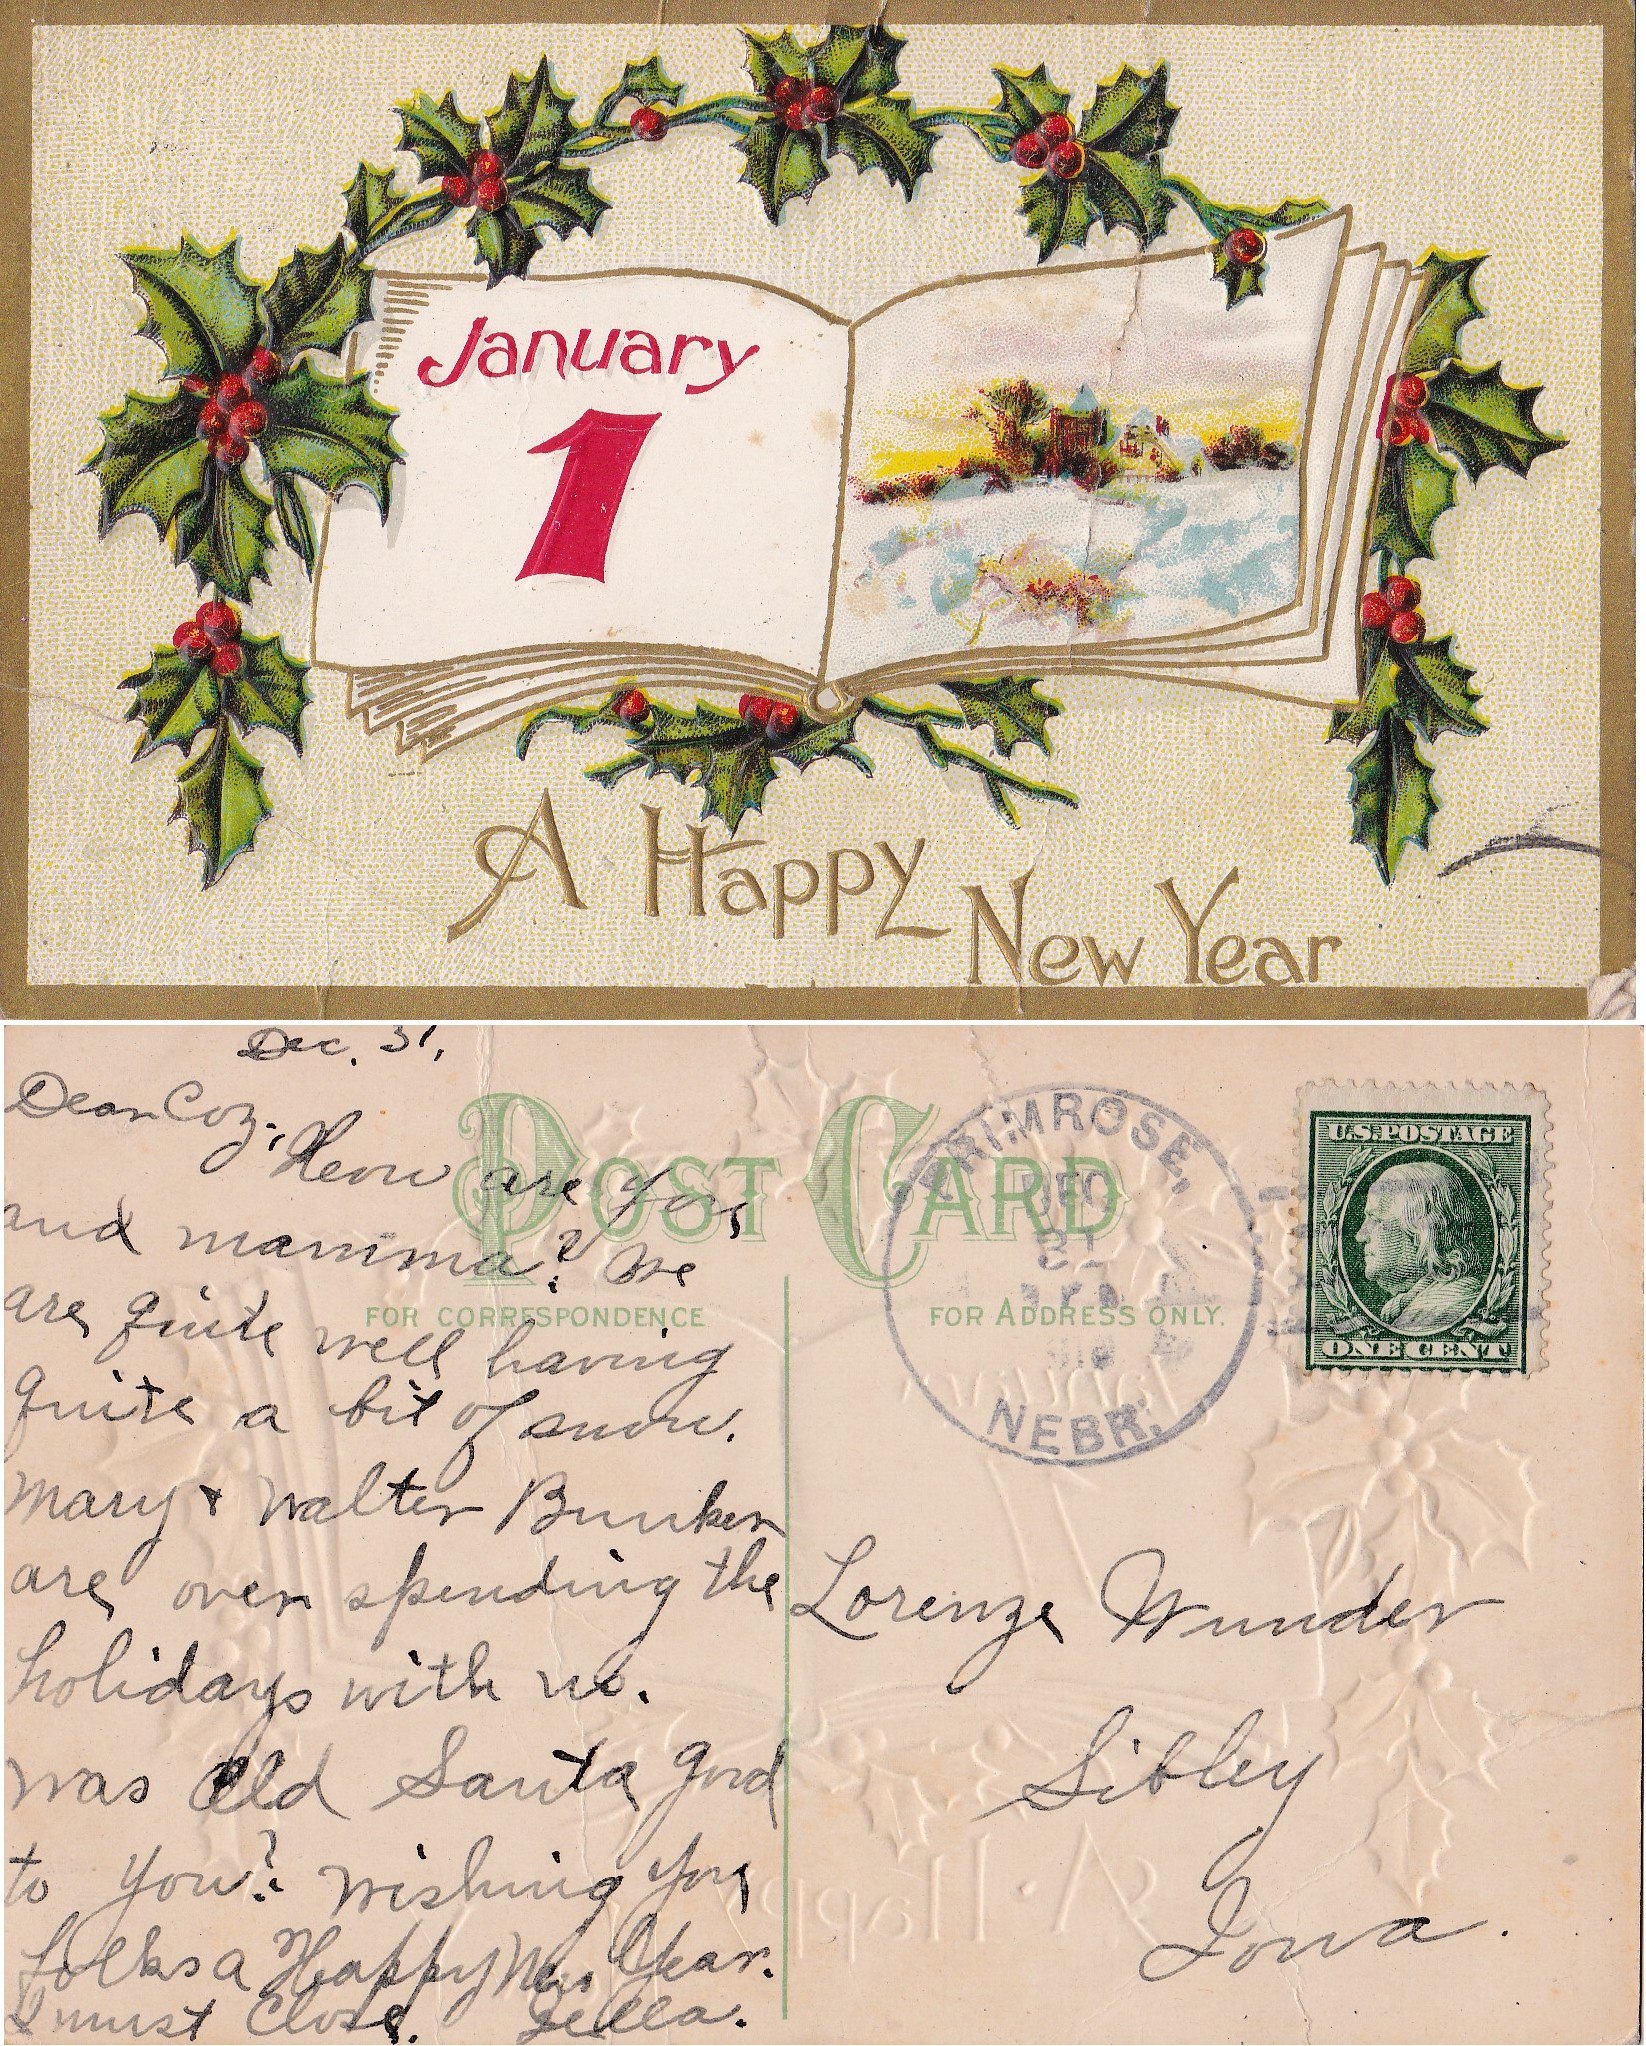 January
1
A Happy
New Year
Dec. 31,
Dear Coz.,
How are you
and mamma? We
are quite well having
quite a bit of snow.
Mary & Walter Bunker
are over spending the
holidays with us.
Was Old Santa good
to you? Wishing you
folks a Happy New Year.
I must close.
POST CARD
FOR CORRESPONDENCE
FOR ADDRESS ONLY.
PRIMROSE,
DEC
NEBR.
U.S. POSTAGE
ONE CENT
Lorenze Wunder
Sibley
Iowa.